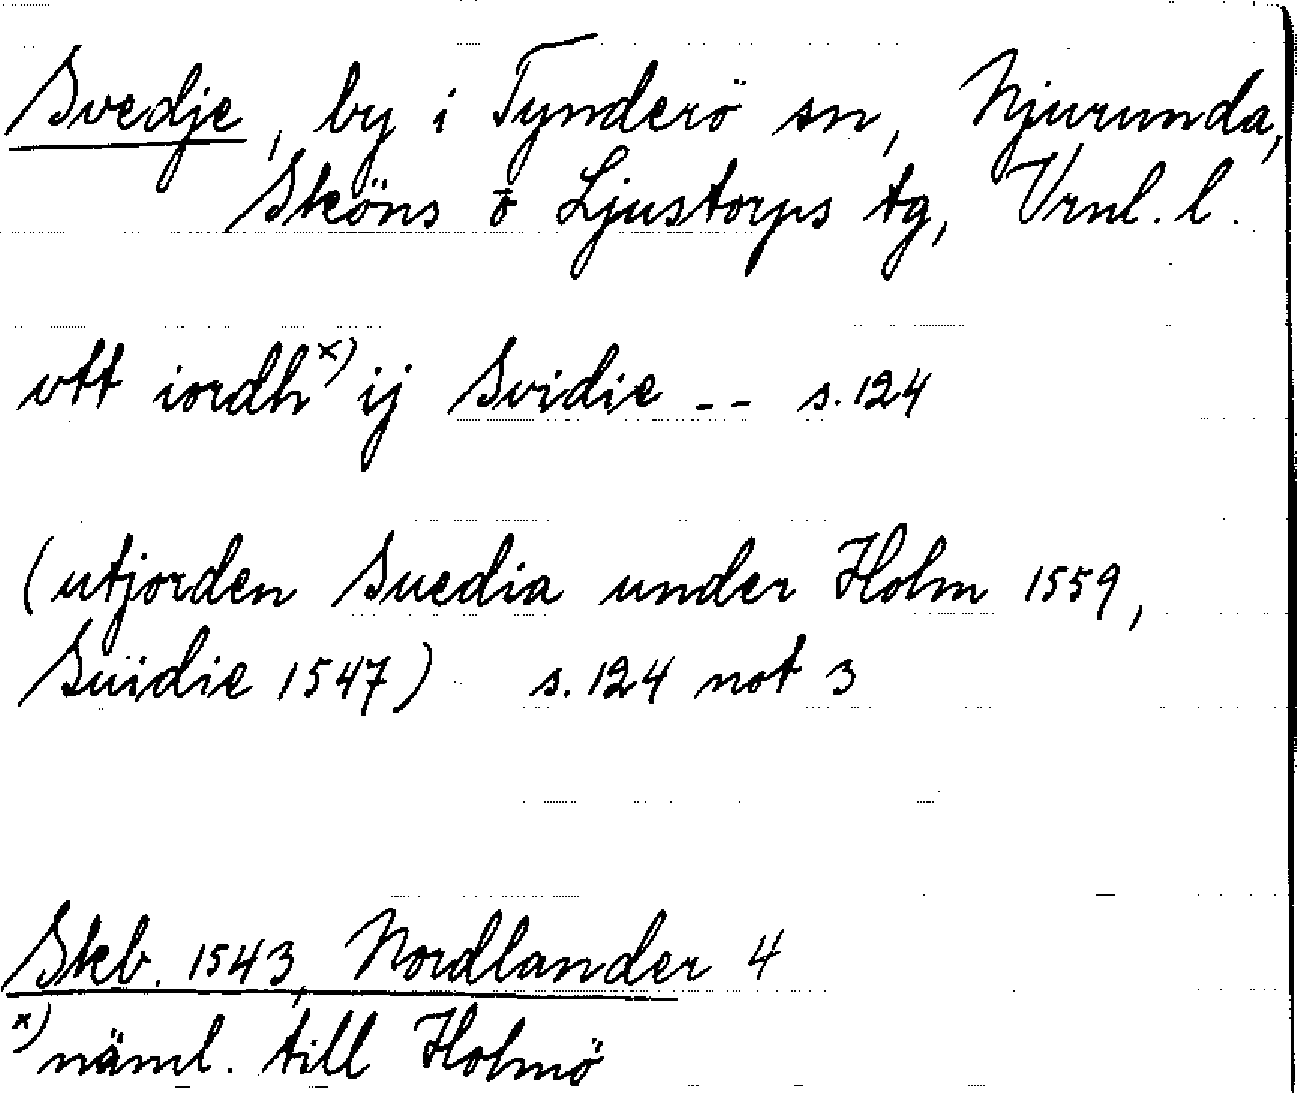 Svedje, by i Tynderö sn, Njurunda,
Sköns o Ljustorps tg, Vrnl. l.
vtt iordh x) ij Svidie -- s. 124
(utjorden Suedia under Holm 1559,
Suidie 1547) s. 124 not 3
Skb. 1543, Nordlander 4
x) näml. till Holmö